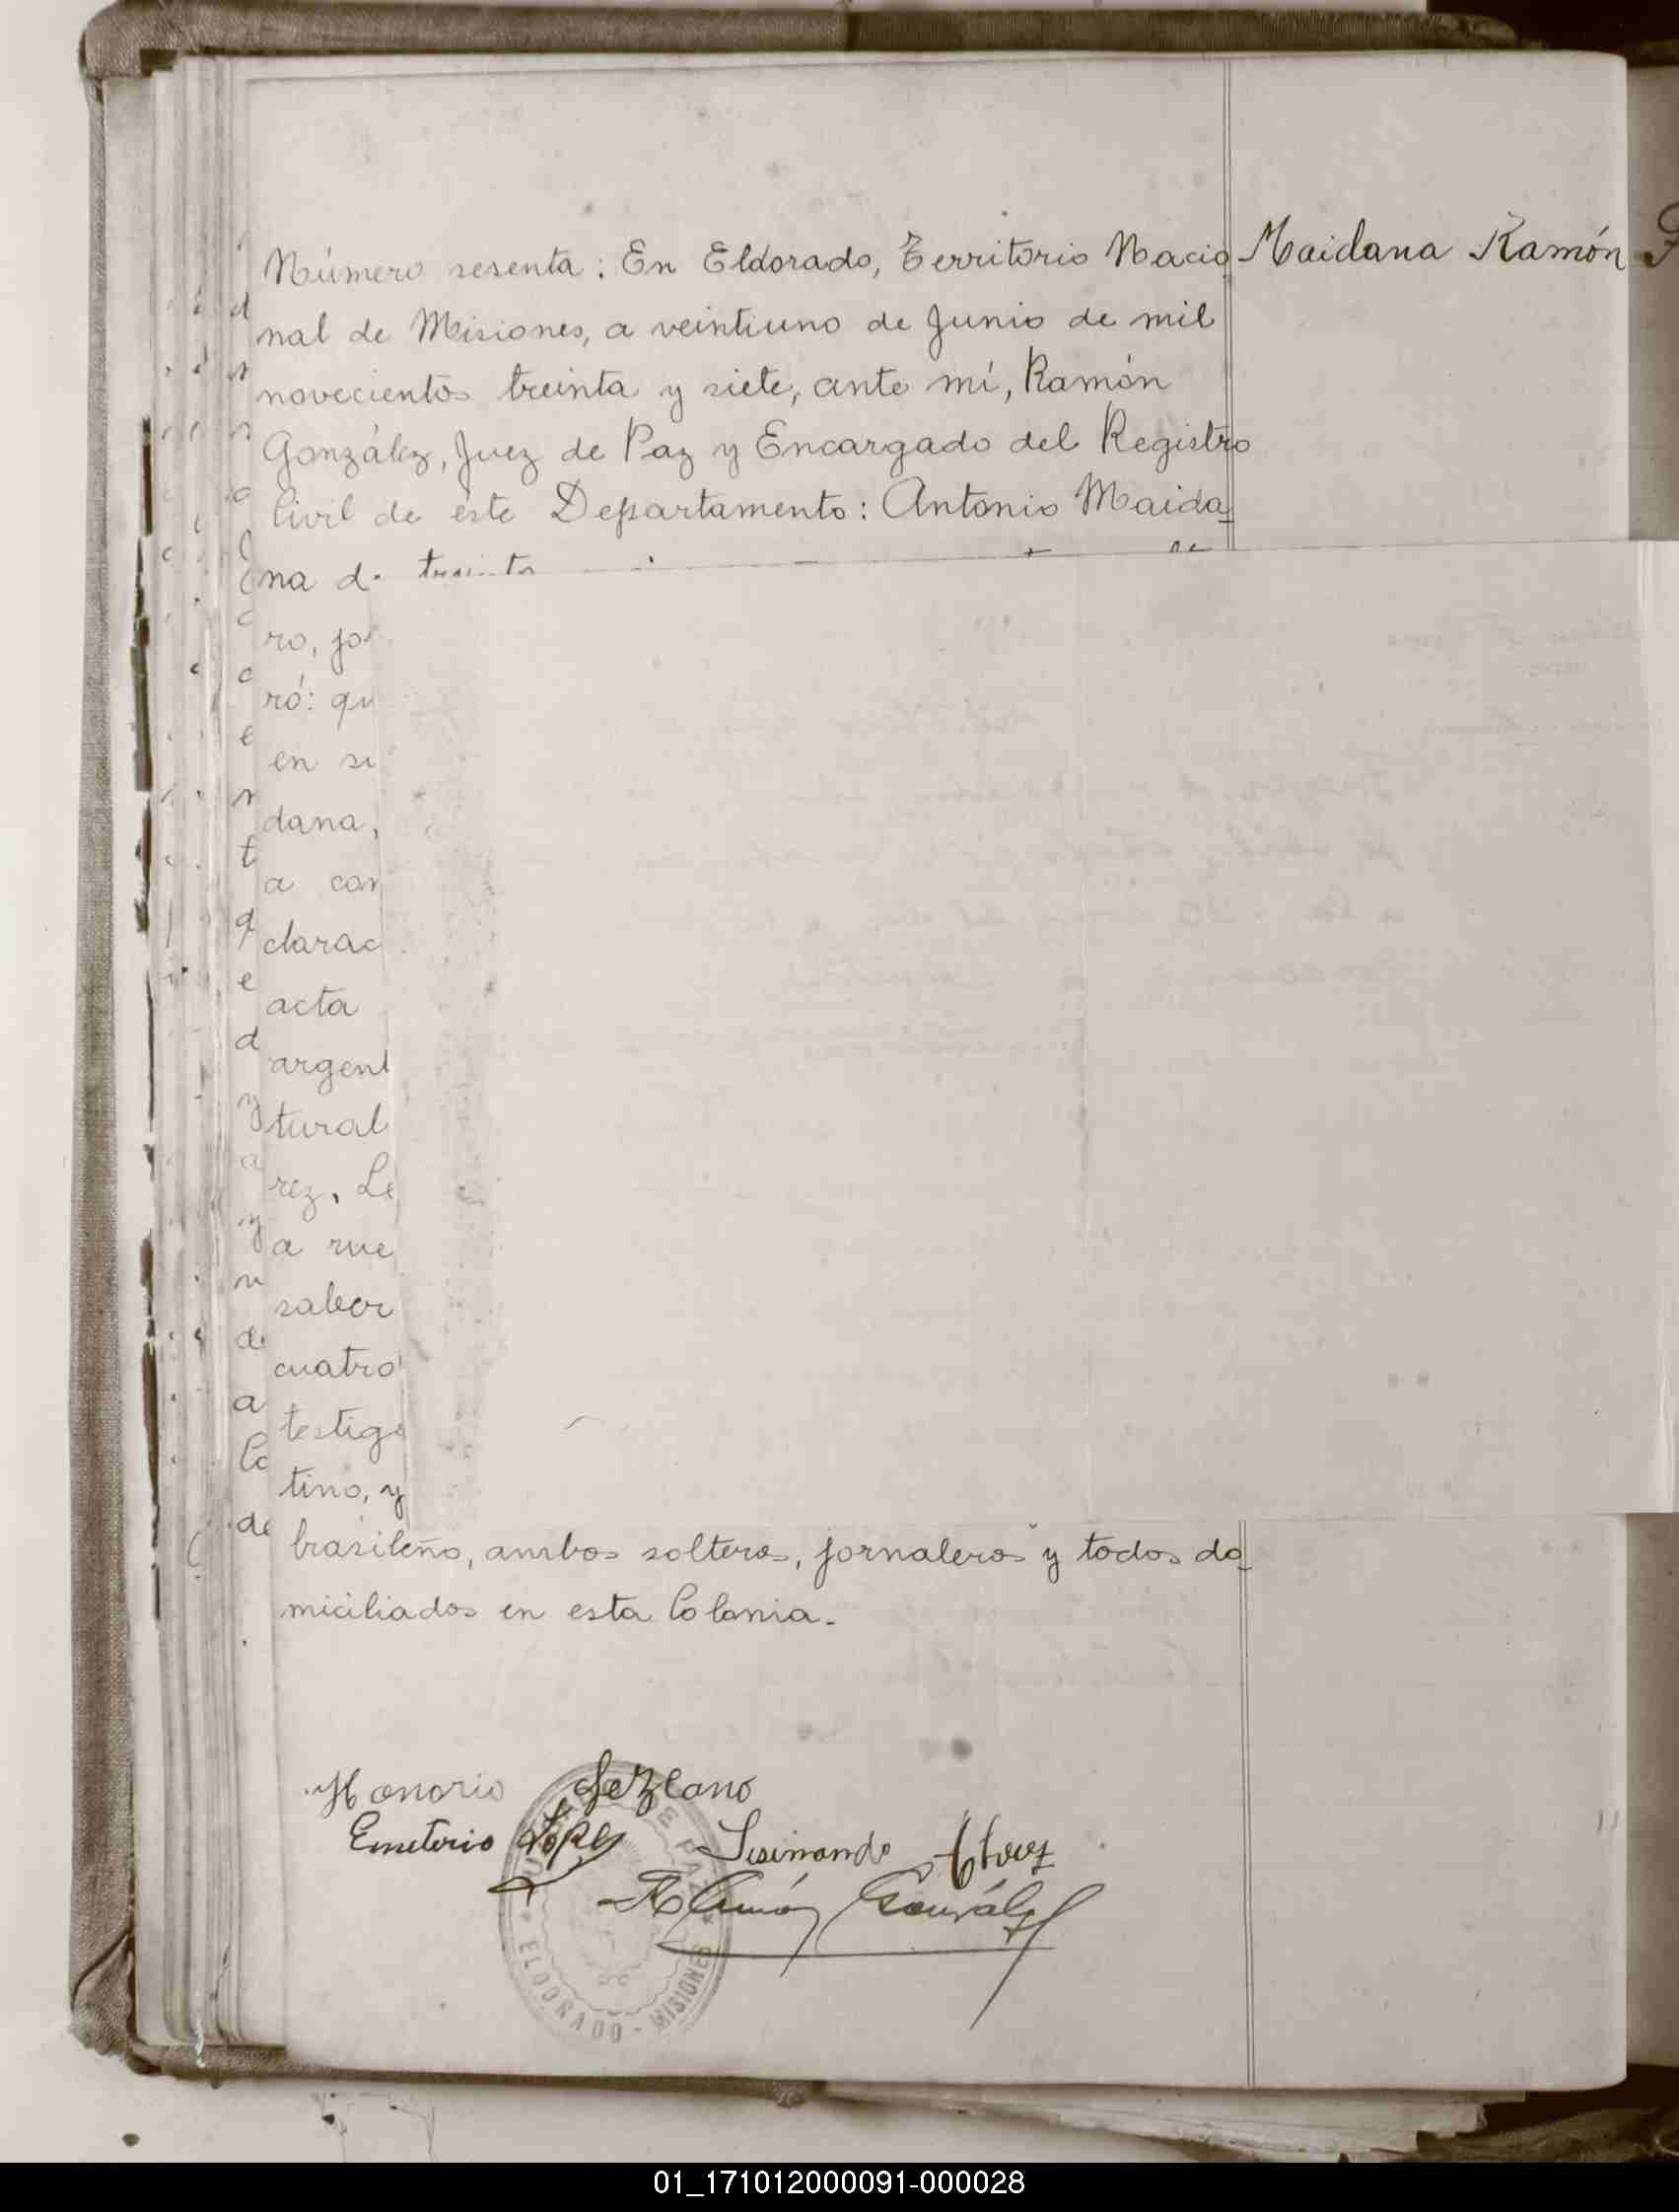 Número sesenta: En Eldorado, Territorio Nacio
Maidana Ramón
nal de Misiones, a veintiuno de Junio de mil
novecientos treinta y siete, ante mí, Ramón
González, Juez de Paz y Encargado del Registro
Civil de éste Departamento: Antonio Maida_
na
ro, jor
ró: qu
en si
dana,
a con
clarac
acta
argent
tural
rez, Le
a rue
saber
cuatro
testigo
tino, y
brasileño, ambos solteros, jornaleros y todos do_
miciliados en esta Colonia.-
Honorio Lezcano
Emeterio López
Sisinando
Ramón González
ELDORADO - MISIONES
01_171012000091-000028